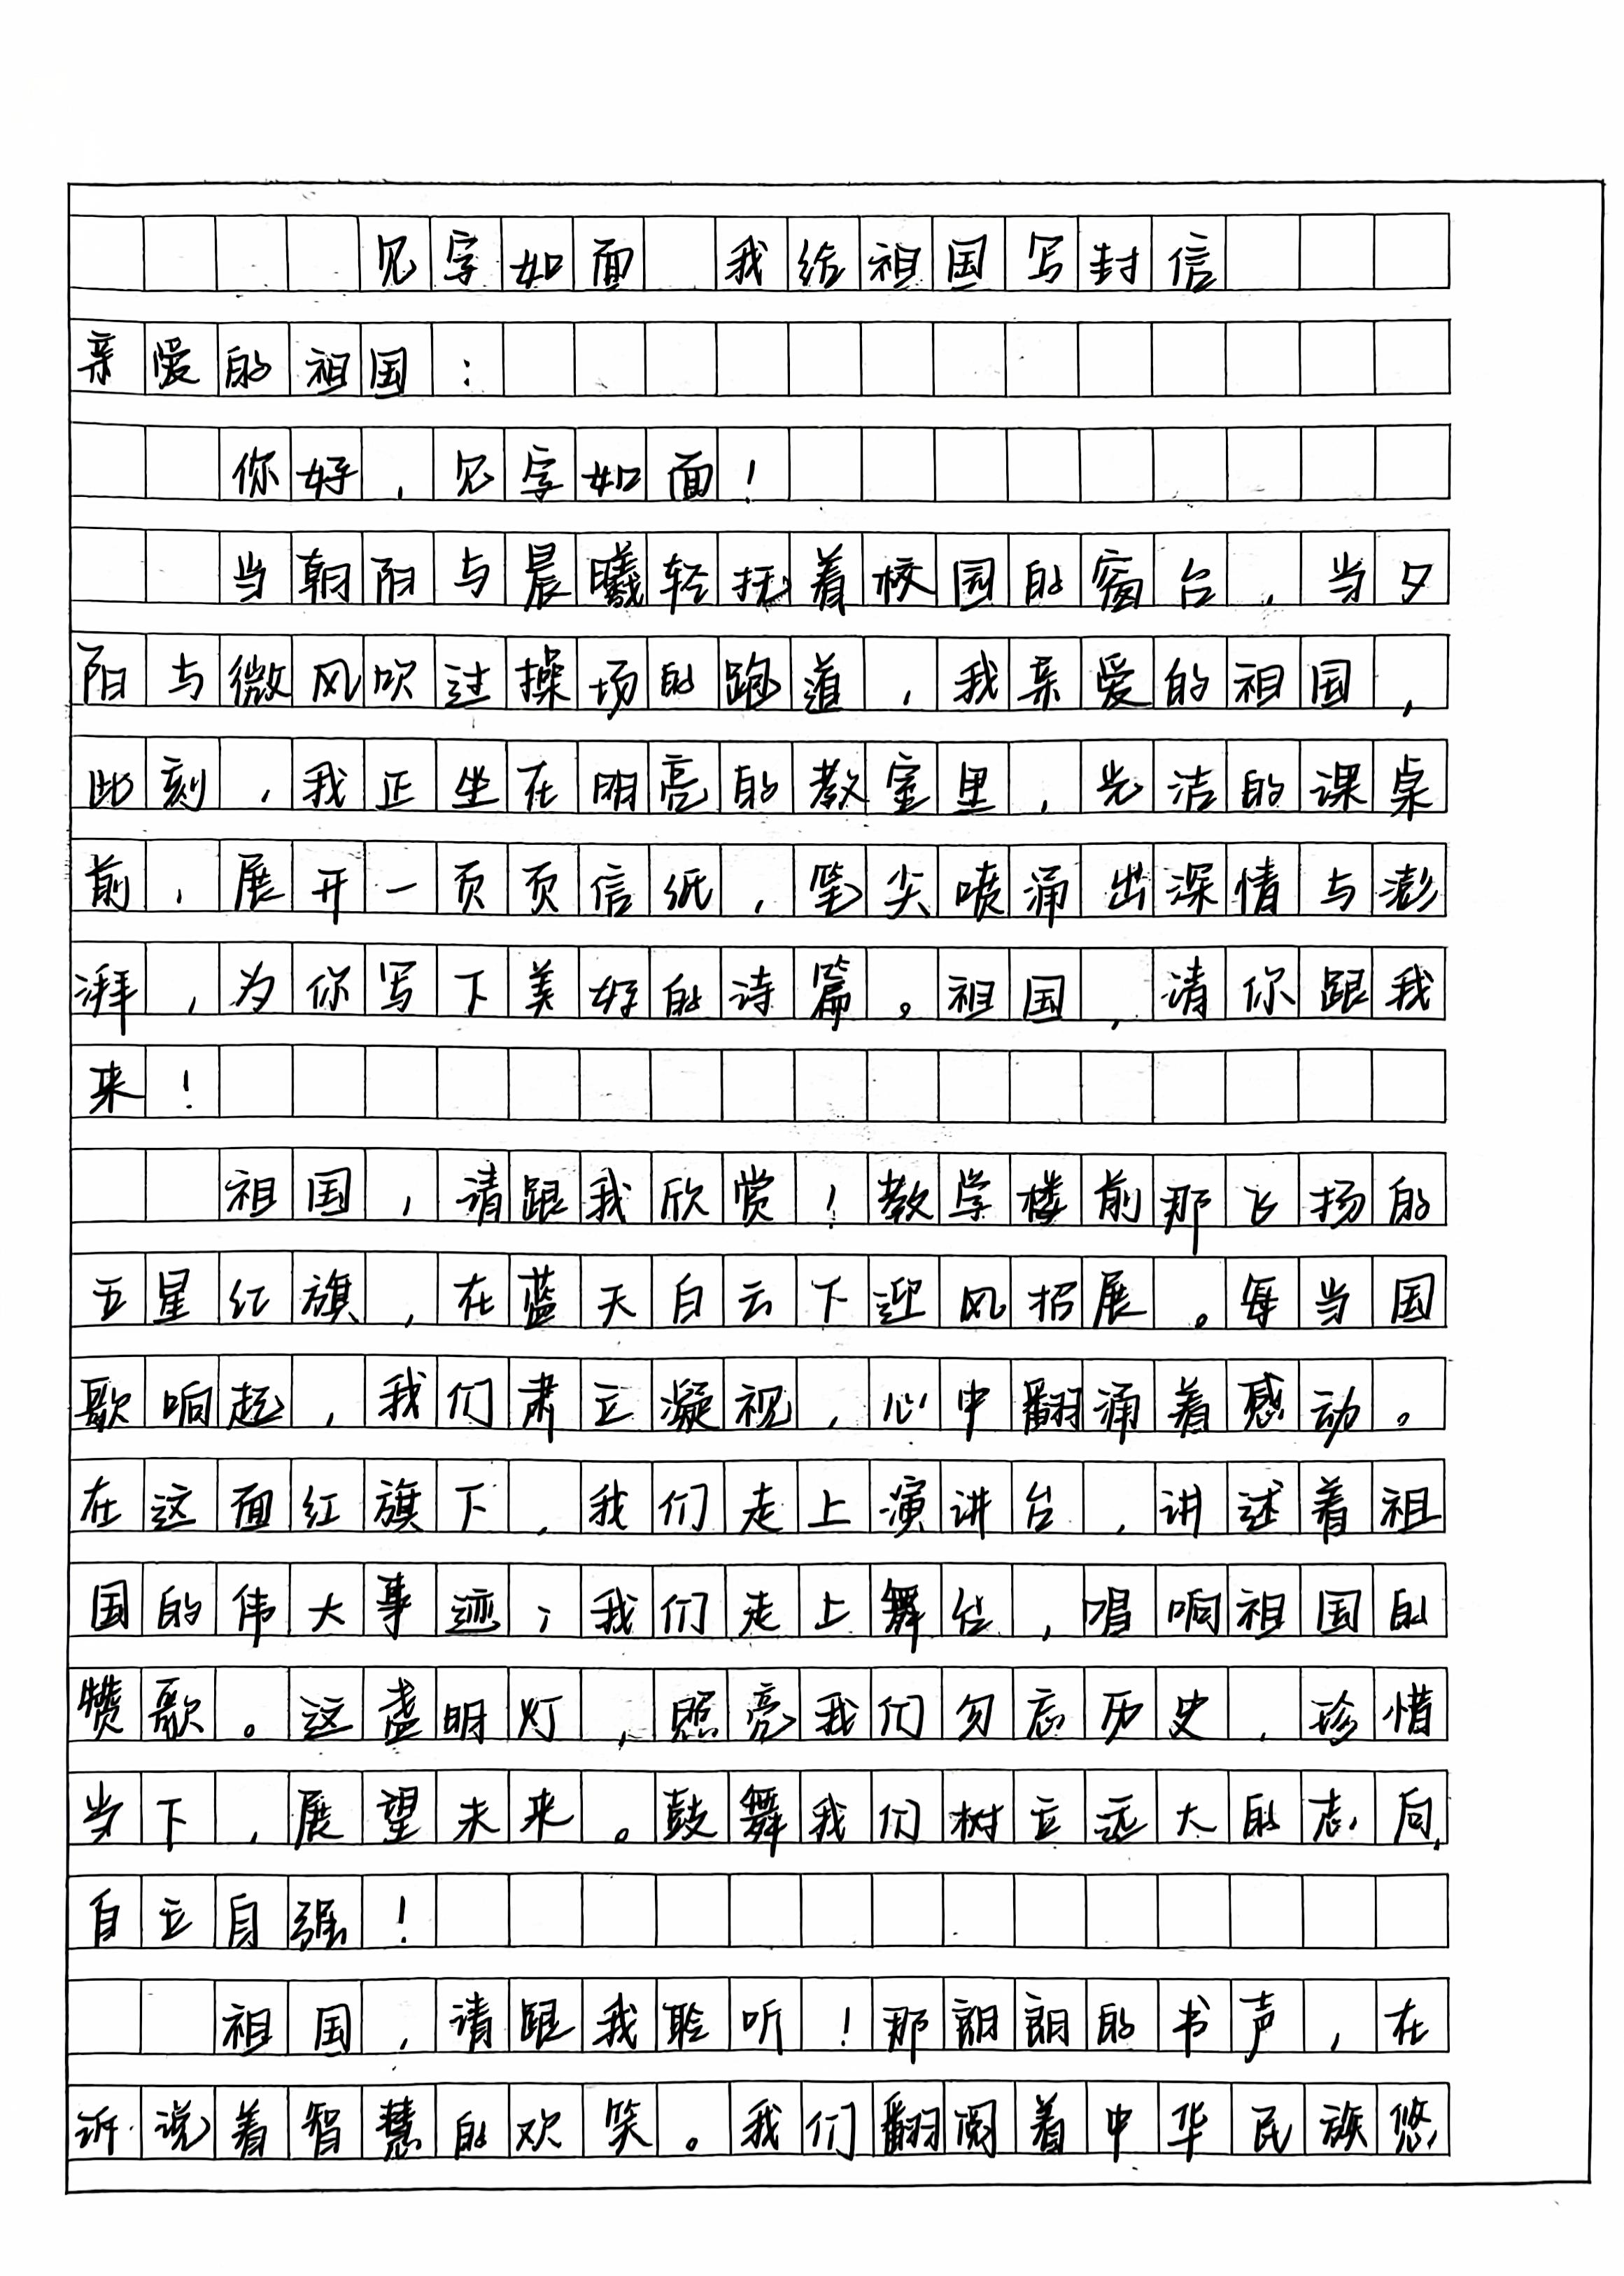 见字如面 我给祖国写封信
亲爱的祖国：
你好，见字如面！
当朝阳与晨曦轻抚着校园的窗台，当夕
阳与微风吹过操场的跑道，我亲爱的祖国，
此刻，我正坐在明亮的教室里，光洁的课桌
前，展开一页页信纸，笔尖喷涌出深情与澎
湃，为你写下美好的诗篇。祖国，请你跟我
来！
祖国，请跟我欣赏！教学楼前那飞扬的
五星红旗，在蓝天白云下迎风招展。每当国
歌响起，我们肃立凝视，心中翻涌着感动。
在这面红旗下，我们走上演讲台，讲述着祖
国的伟大事迹；我们走上舞台，唱响祖国的
赞歌。这盏明灯，照亮我们勿忘历史，珍惜
当下，展望未来。鼓舞我们树立远大的志向，
自立自强！
祖国，请跟我聆听！那朗朗的书声，在
诉说着智慧的欢笑。我们翻阅着中华民族悠